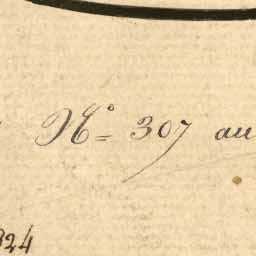 Nº= 307 au
324